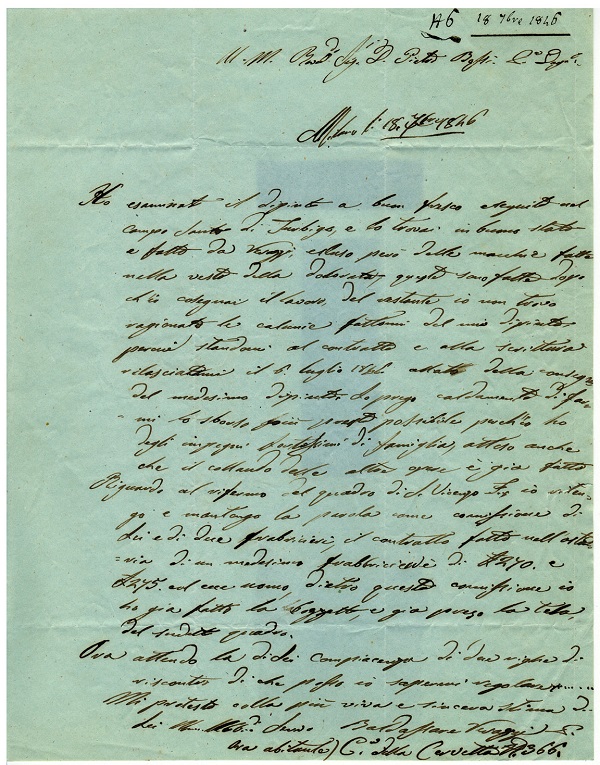 A6 18 7bre 1846
M. M. Rev.do Sig.r D. Pietro Bossi
Milano li 18. 7bre 1846
Ho esaminato il dipinto a buon fresco eseguito nel
campo Santo di Turbigo, e lo trovai in buono stato
e fatto da Verazzi, escluso però delle macchie fatte
nella veste della Dolorata, queste sono fatte dopo
ch'io consegnai il lavoro, del restante io non trovo
ragionate le calunie fattomi del mio dipinto,
perciò standomi al contratto e alla scrittura
rilasciatami il 6. luglio 1846 all'atto della consegna
del medesimo dipinto. La prego caldamente di far
=mi lo sborso più presto possibile perchè ho
degli impegni fortissimi di famiglia, atteso anche
che il collaudo dalle altre opere è già fatto
Riguardo al riferirmi del quadro di S. Vincenzo io riten-
go e mantengo la parola come commissione di
Lei e di due fabbricieri, il contratto fatto nell'oste
=ria di un medesimo fabbriciere di £270. e
£275. ed ecc nomo, dietro questa commissione io
ho già fatto la Bozzetto, e già presso la tela,
del sudetto quadro.
Ora attendo la di Lei compiacenza di due righe di
riscontro di che posso io sapermi regolare
Mi protesto colla più viva e sincera stima di
Lei Servo Baldassare Verazzi
Ora abitante C.a della Cervetta N. 366.